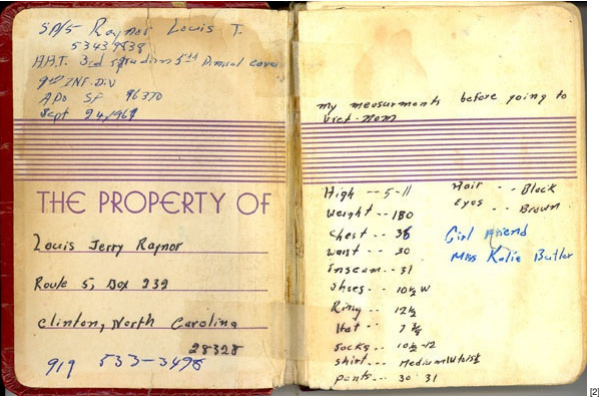 SP/5 Raynor Louis T.
53439838
H.H.T. 3rd squadron 5th Armed cavs
9th INF. DIV
APO SF 96370
Sept 24, 1969
THE PROPERTY OF
Louis Jerry Raynor
Route 5, Box 239
Clinton, North Carolina
28328
919 533-3498
my measurments before going to
Viet-Nam
High -- 5-11
Weight -- 180
Chest -- 38
Waist -- 30
Inseam -- 31
Shoes -- 10½ W
Ring -- 12½
Hat -- 7
Socks -- 10½-12
Shirt -- Medium
pants -- 30 31
Hair -- Black
Eyes -- Brown
Girl friend
Miss Katie Butler
[2]